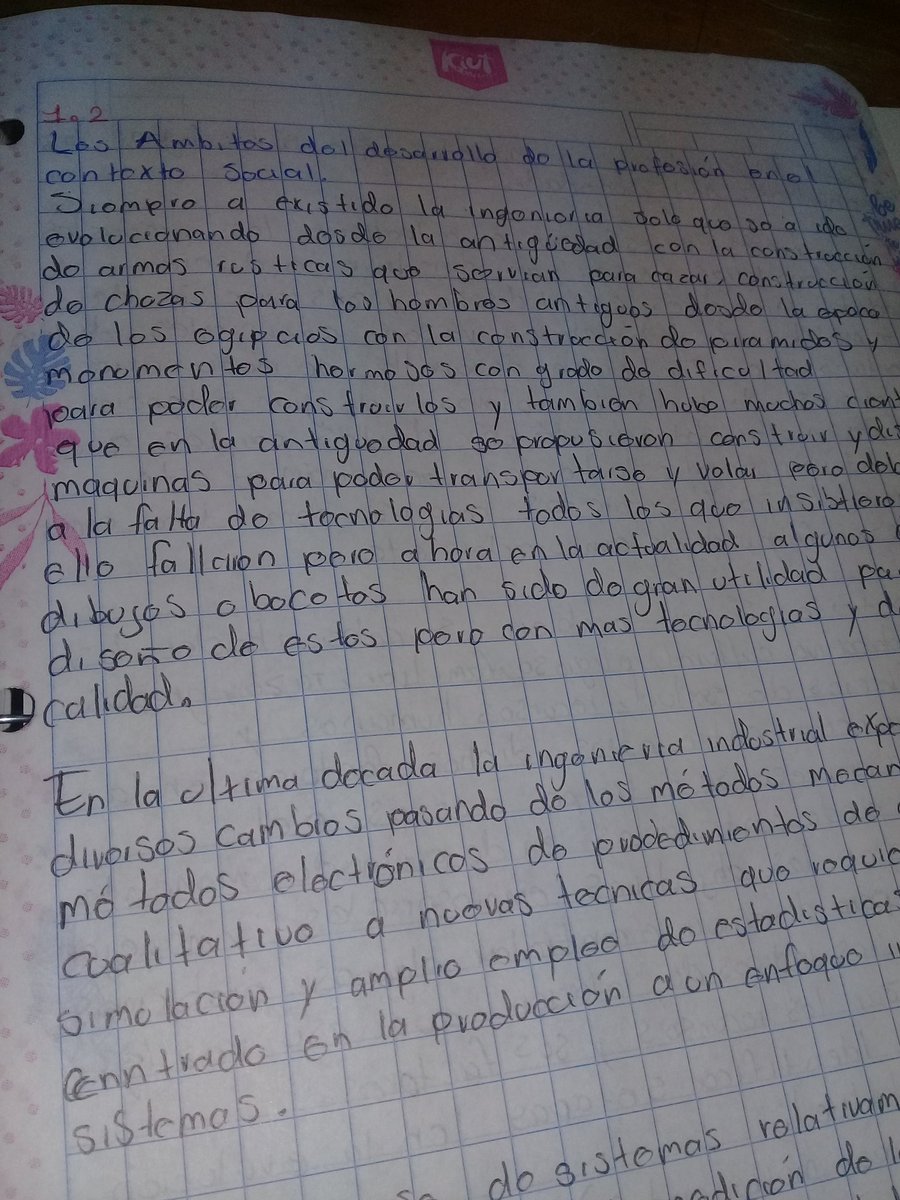 Kiut
1.2
Los Ambitos del desarrollo de la profesión en el
contexto Social.
Siempre a existido la ingenieria solo que se a ido
evolucionando desde la antigüedad con la construcción
de armas rusticas que servian para cazar, construcción
de chozas para los hombres antiguos desde la epoca
de los egipcios con la construcción de piramides y
monumentos hermosos con grado de dificultad
para poder construirlos y tambien hubo muchos cient
que en la antiguedad se propusieron construir y di
maquinas para poder transportarse y volar pero deb
a la falta de tecnologias todos los que insistiero
ello fallaron pero ahora en la actualidad algunos
dibujos o bocetos han sido de gran utilidad pa
diseño de estos pero con mas tecnologias y d
calidad.
En la ultima decada la ingenieria industrial expe
diversos cambios pasando de los métodos mecan
métodos electrónicos de procedimientos de
cualitativo a nuevas tecnicas que requie
simulación y amplio empleo de estadistica
cenntrado en la producción a un enfoque
sistemas.
de sistemas relativam
de l